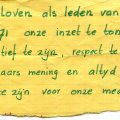 loven als leden van
gi onze inzet te ton
tief te zijn, respect te
aars mening en altyd
te zijn voor onze med